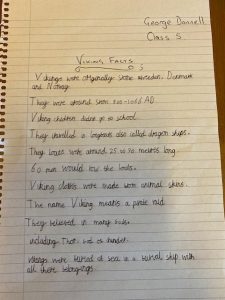 George Donnell
Class 5.
Viking Facts
Vikings were originally from Sweden, Denmark
and Norway.
They were around from 800-1066 AD.
Viking children didn't go to school.
They travelled in longboats also called dragon ships.
They boats were around 25 to 30 metres long.
60 men would row the boats.
Viking clothes were made from animal skins.
The name Viking means a pirate raid.
They believed in many Gods.
including Thor God of thunder.
Vikings were buried at sea in a burial ship with
all there belongings.